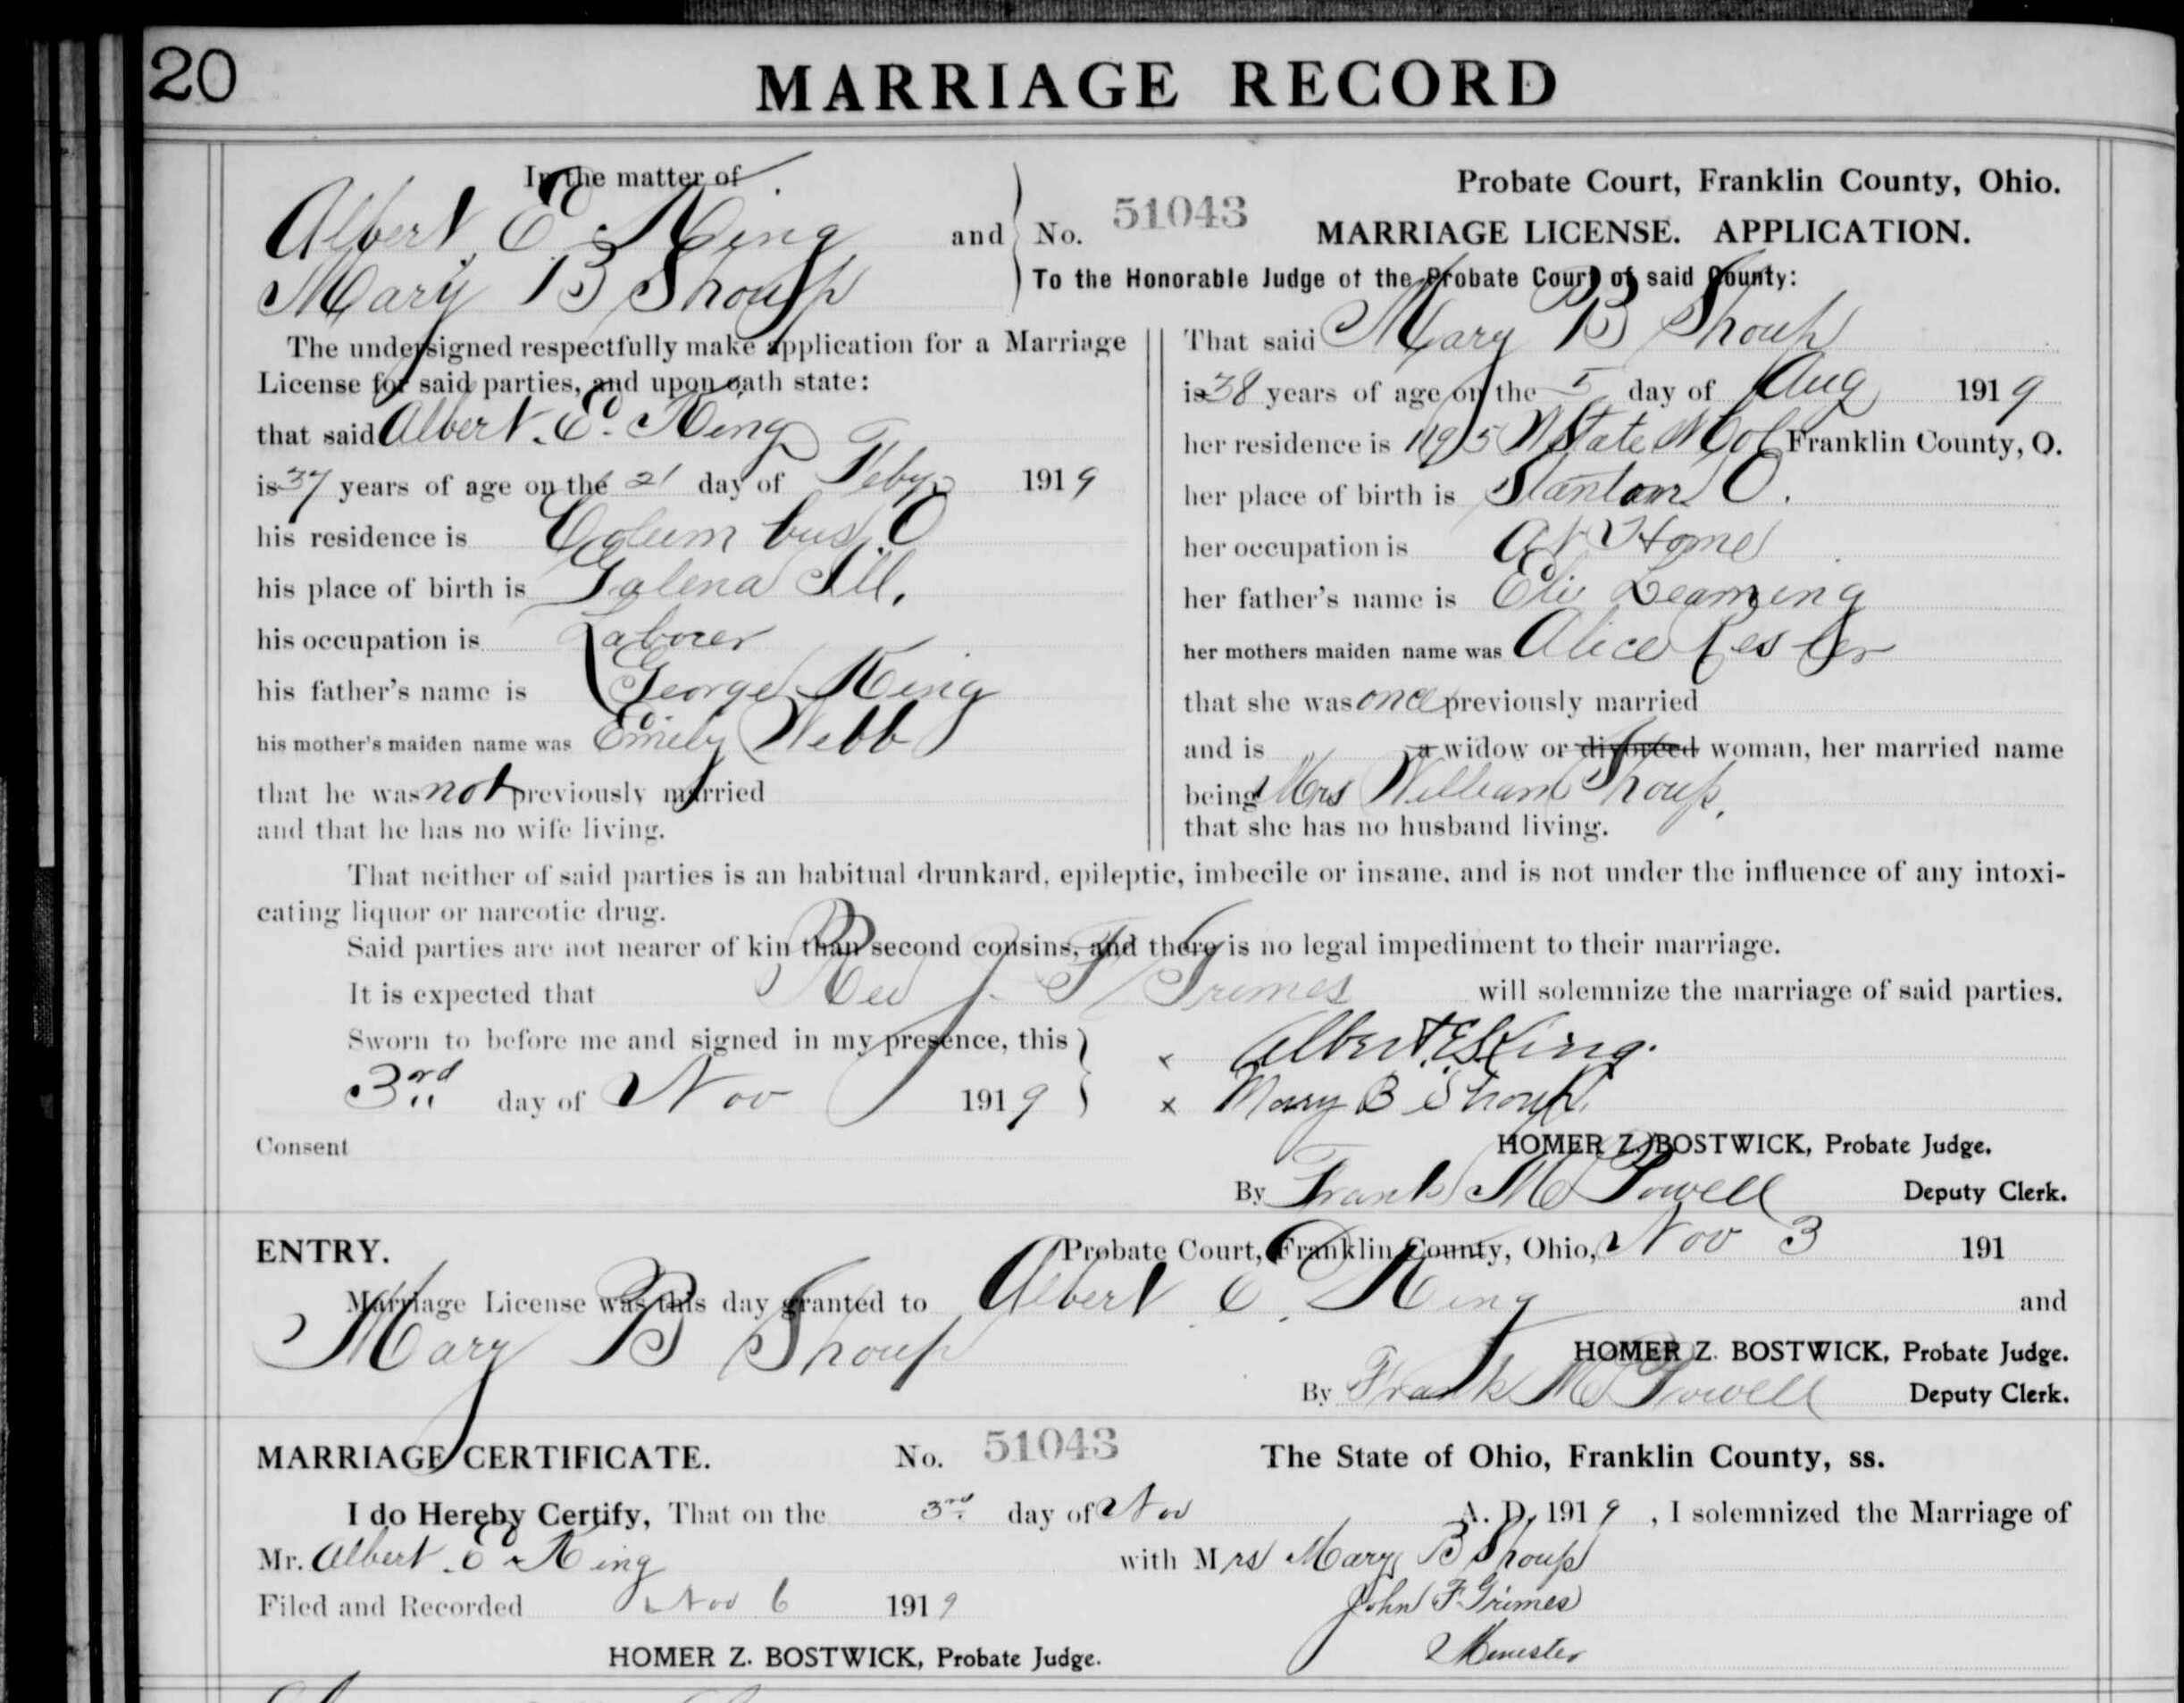 20
MARRIAGE RECORD
In the matter of
Albert E King and
Mary B Shoup
No. 51043
Probate Court, Franklin County, Ohio.
MARRIAGE LICENSE. APPLICATION.
To the Honorable Judge of the Probate Court of said County:
The undersigned respectfully make application for a Marriage
License for said parties, and upon oath state:
that said Albert. E. King
is 37 years of age on the 21 day of Feby 1919
his residence is Columbus, O
his place of birth is Galena Ill.
his occupation is Laborer
his father's name is George King
his mother's maiden name was Emily Webb
that he was not previously married
and that he has no wife living.
That said Mary B Shoup
is 38 years of age on the 5 day of Aug 1919
her residence is State Col Franklin County, O.
her place of birth is O.
her occupation is At Home
her father's name is Eli Leaming
her mothers maiden name was Alice
that she was once previously married
and is a widow or divorced woman, her married name
being Mrs William Shoup.
that she has no husband living.
That neither of said parties is an habitual drunkard, epileptic, imbecile or insane, and is not under the influence of any intoxi-
cating liquor or narcotic drug.
Said parties are not nearer of kin than second cousins, and there is no legal impediment to their marriage.
It is expected that Rev J. F Grimes will solemnize the marriage of said parties.
Sworn to before me and signed in my presence, this
3rd day of Nov 1919
x Albert E King.
x Mary B Shoup.
Consent
HOMER Z. BOSTWICK, Probate Judge.
By Frank M Powell Deputy Clerk.
ENTRY. Probate Court, Franklin County, Ohio, Nov 3 191
Marriage License was this day granted to Albert E. King and
Mary B Shoup
HOMER Z. BOSTWICK, Probate Judge.
By Frank M Powell Deputy Clerk.
MARRIAGE CERTIFICATE. No. 51043 The State of Ohio, Franklin County, ss.
I do Hereby Certify, That on the 3rd day of Nov A. D. 1919, I solemnized the Marriage of
Mr. Albert. E King with Mrs Mary B Shoup
Filed and Recorded Nov 6 1919
John F. Grimes
Minister
HOMER Z. BOSTWICK, Probate Judge.